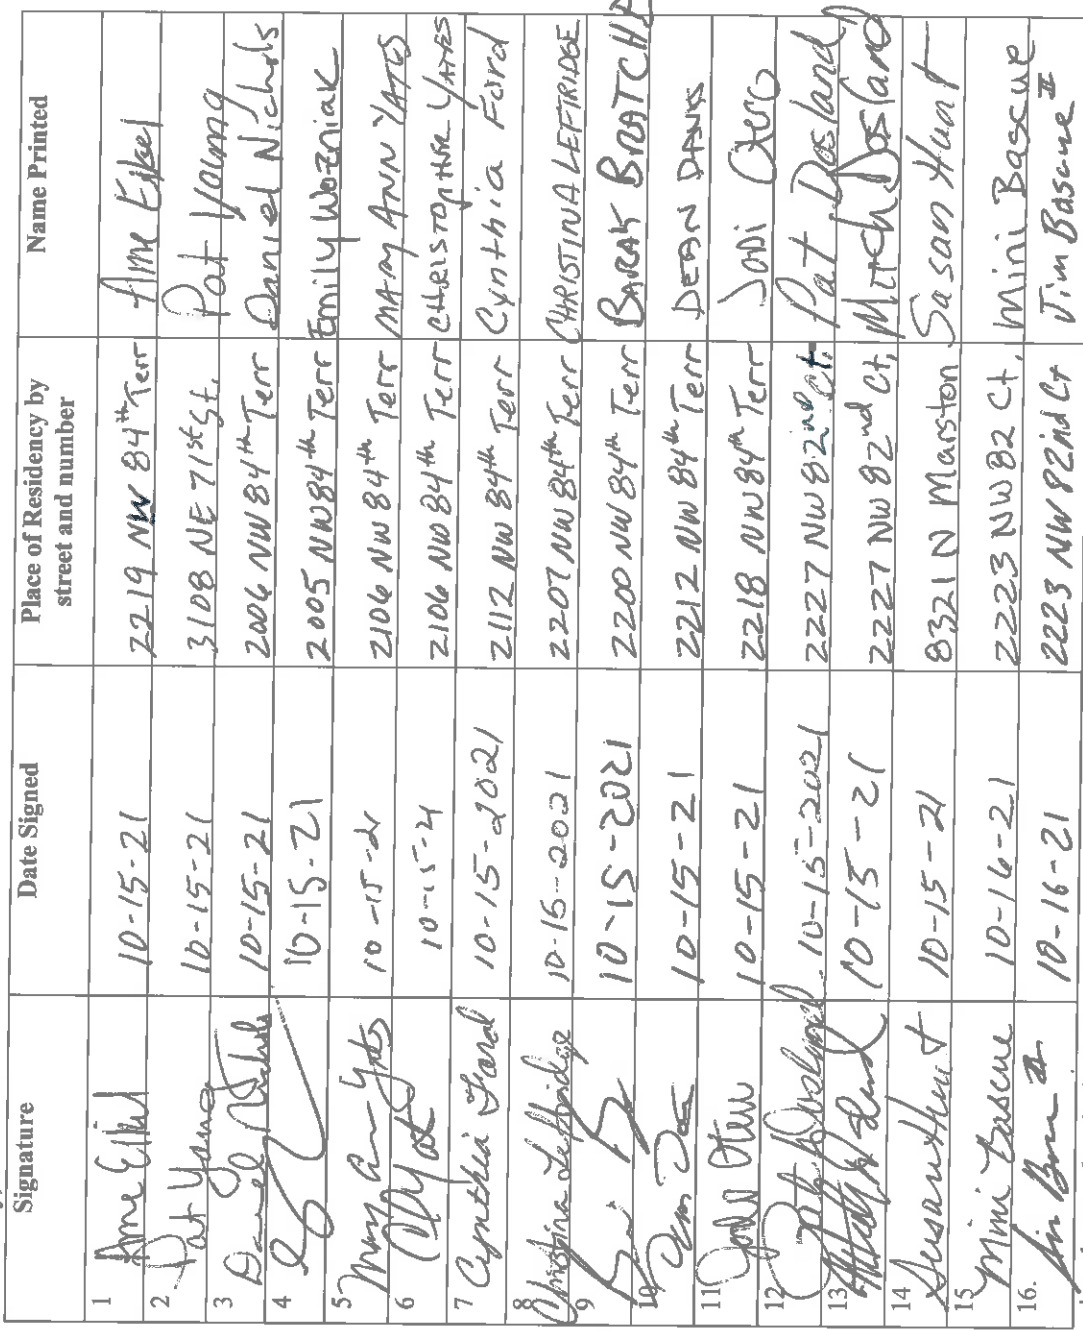 Signature Date Signed Place of Residency by street and number Name Printed
1 Ame Eikel 10-15-21 2219 NW 84th Terr Ame Eikel
2 Pat Young 10-15-21 3108 NE 71st St. Pat Young
3 Daniel Nichols 10-15-21 2006 NW 84th Terr Daniel Nichols
4 10-15-21 2005 NW 84th Terr Emily Wozniak
5 Mary Ann Yates 10-15-21 2106 NW 84th Terr MARY ANN YATES
6 10-15-21 2106 NW 84th Terr CHRISTOPHER YATES
7 Cynthia Ford 10-15-2021 2112 NW 84th Terr Cynthia Ford
8 Christina Leftridge 10-15-2021 2207 NW 84th Terr CHRISTINA LEFTRIDGE
9 10-15-2021 2200 NW 84th Terr BARAK BRATCHE
10 10-15-21 2212 NW 84th Terr DEAN DANKS
11 10-15-21 2218 NW 84th Terr Jodi Otero
12 Pat Dosland 10-15-2021 2227 NW 82nd Ct. Pat Dosland
13 10-15-21 2227 NW 82nd Ct, Mitch Dosland
14 Susan Hunt 10-15-21 8321 N Marston Susan Hunt
15 Mini Bascue 10-16-21 2223 NW 82 Ct. Mini Bascue
16. 10-16-21 2223 NW 82nd Ct Jim Bascue II